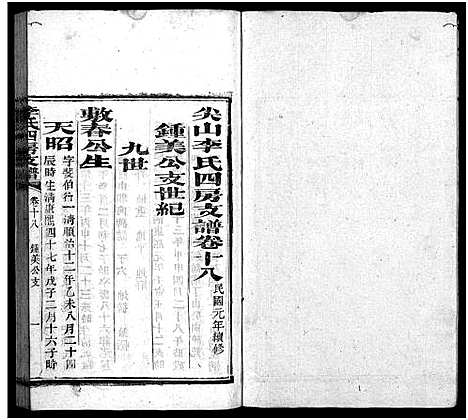 尖山李氏四房支譜卷十八 民國元年續修
鍾美公支世紀
九世
敬春公生
天昭 字斐伯行一清順治十二年乙未八月二十四
辰時生清康熙四十七年戊子二月十六子時
李氏四房支譜 卷十八 鍾美公支 一